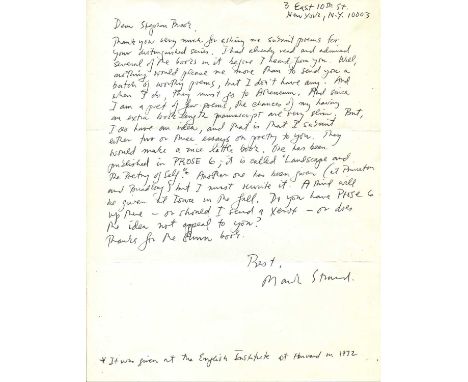 3 East 10th St.
New York, N.Y. 10003
Dear Stephen Brook
Thank you very much for asking me submit poems for
your distinguished series. I had already read and admired
several of the books in it before I heard from you. Well,
nothing would please me more than to send you a
batch of worthy poems, but I don't have any. And
when I do, they must go to Atheneum. And since
I am a poet of few poems, the chances of my having
an extra book length manuscript are very slim. But,
I do have an idea, and that is that I submit
either two or three essays on poetry to you. They
would make a nice little book. One has been
published in PROSE 6; it is called "Landscape and
the Poetry of Self."* Another one has been given (at Princeton
and Brandeis) but I must rewrite it. A third will
be given at Iowa in the fall. Do you have PROSE 6
up there – or should I send a Xerox – or does
the idea not appeal to you?
Thanks for the book.
Best,
Mark Strand
* It was given at the English Institute at Harvard in 1972